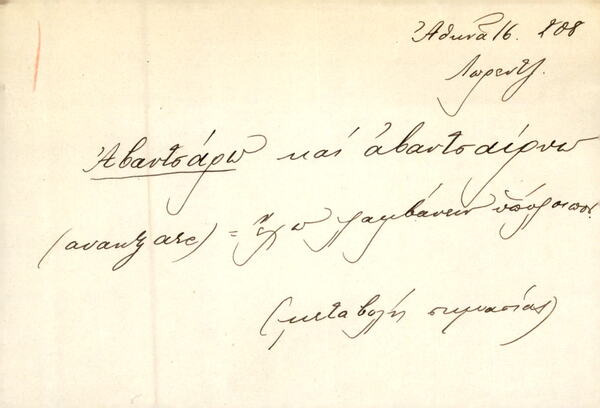 Ἀθηνᾶ 16. 208
Λορεντζ.
Ἀβαντσάρω καὶ ἀβαντσαίρνω
(avanzare) = ἔχω λαμβάνειν ὑπόλοιπον
(μεταβολὴ σημασίας)